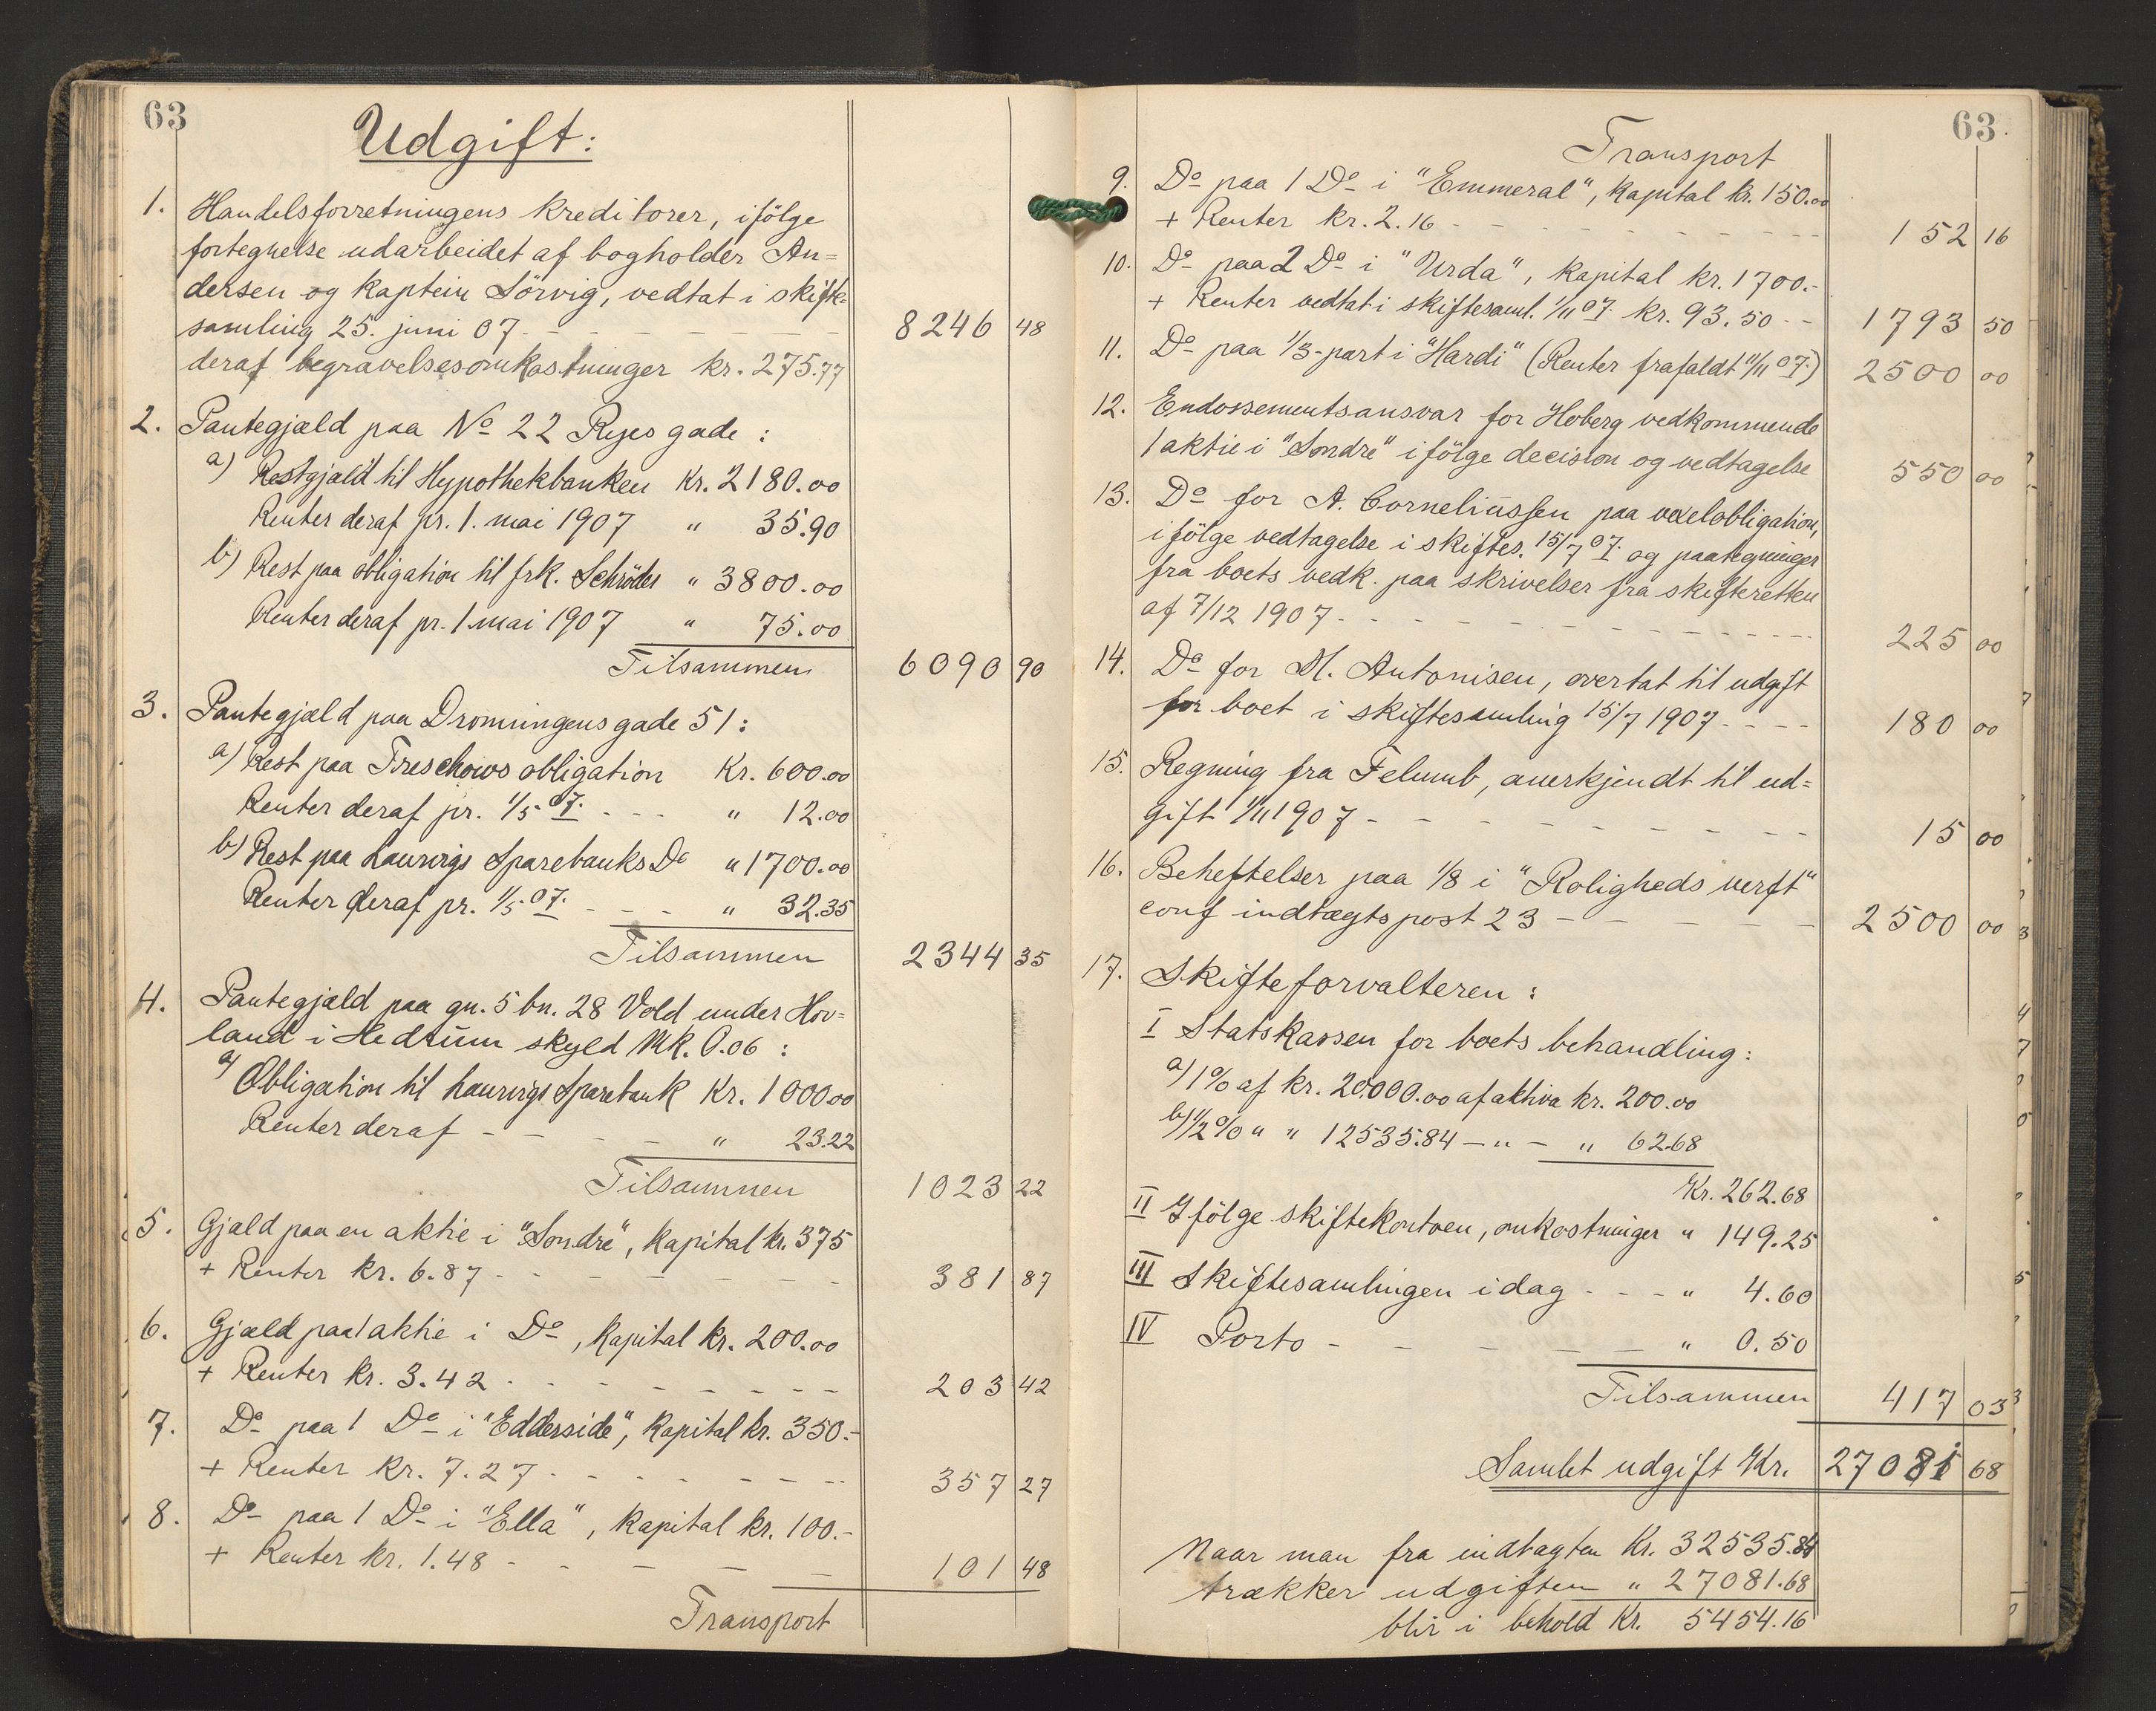 63
Udgift:
1. Handelsforretningens kreditorer, ifölge
fortegnelse udarbeidet af bogholder An=
dersen og kaptein Sörvig, vedtat i skifte=
samling 25. juni 07 - - - - - - 8246 48
deraf begravelsesomkostninger kr. 275.77
2. Pantegjæld paa No 22 Ryes gade:
a) Restgjæld til Hypothekbanken Kr. 2180.00
Renter deraf pr. 1. mai 1907 " 35.90
b) Rest paa obligation til frk. Schröder " 3800.00
Renter deraf pr. 1 mai 1907 " 75.00
Tilsammen 6090 90
3. Pantegjæld paa Dronningens gade 51:
a) Rest paa Treschows obligation Kr. 600.00
Renter deraf pr. 1/5 07. - - - " 12.00
b) Rest paa Laurvigs Sparebanks Do " 1700.00
Renter deraf pr. 1/5 07. - - - " 32.35
Tilsammen 2344 35
4. Pantegjæld paa gn. 5 bn. 28 Vold under Hov=
land i Hedrum skyld Mk. 0.06:
a) Obligation til Laurvigs Sparebank Kr. 1000.00
Renter deraf - - - - " 23.22
Tilsammen 1023 22
5. Gjæld paa en aktie i "Söndre", kapital kr. 375
+ Renter kr. 6.87 - - - - - - - 381 87
6. Gjæld paa 1 aktie i Do, kapital kr. 200.00
+ Renter kr. 3.42 - - - - - - - 203 42
7. Do paa 1 Do i "Edderside", kapital kr. 350.-
+ Renter kr. 7.27 - - - - - - - 357 27
8. Do paa 1 Do i "Ella", kapital kr. 100.-
+ Renter kr. 1.48 - - - - - 101 48
Transport
63
Transport
9. Do paa 1 Do i "Emmeral", kapital kr. 150.00
+ Renter kr. 2.16 - - - - - - - - 152 16
10. Do paa 2 Do i "Urda", kapital kr. 1700.-
+ Renter vedtat i skiftesaml. 1/11 07. kr. 93.50 - - 1793 50
11. Do paa 1/3-part i "Hardi" (Renter frafaldt 11/11 07.) 2500 00
12. Endossementsansvar for Hoberg vedkommende
1 aktie i "Söndre" ifölge decision og vedtagelse 550 00
13. Do for A. Corneliussen paa vexelobligation,
ifölge vedtagelse i skiftes. 15/7 07. og paategninger
fra boets vedk. paa skrivelser fra skifteretten
af 7/12 1907 - - - - - - - - - - 225 00
14. Do for M. Antonisen, overtat til udgift
for boet i skiftesamling 15/7 1907 - - - - 180 00
15. Regning fra Felumb, anerkjendt til ud=
gift 1/11 1907 - - - - - - - - 15 00
16. Beheftelser paa 1/8 i "Roligheds verft"
conf indtægtspost 23 - - - - - 2500 00
17. Skifteforvalteren:
I Statskassen for boets behandling:
a) 1% af kr. 20.000.00 af aktiva kr. 200.00
b) 1/2% " " 12535.84 - " - " 62.68
Kr. 262.68
II Ifölge skiftekontoen, omkostninger " 149.25
III Skiftesamlingen idag - - - " 4.60
IV Porto - - - - - " 0.50
Tilsammen 417 03
Samlet udgift Kr. 27081 68
Naar man fra indtægten Kr. 32535.84
trækker udgiften " 27081.68
blir i behold Kr. 5454.16